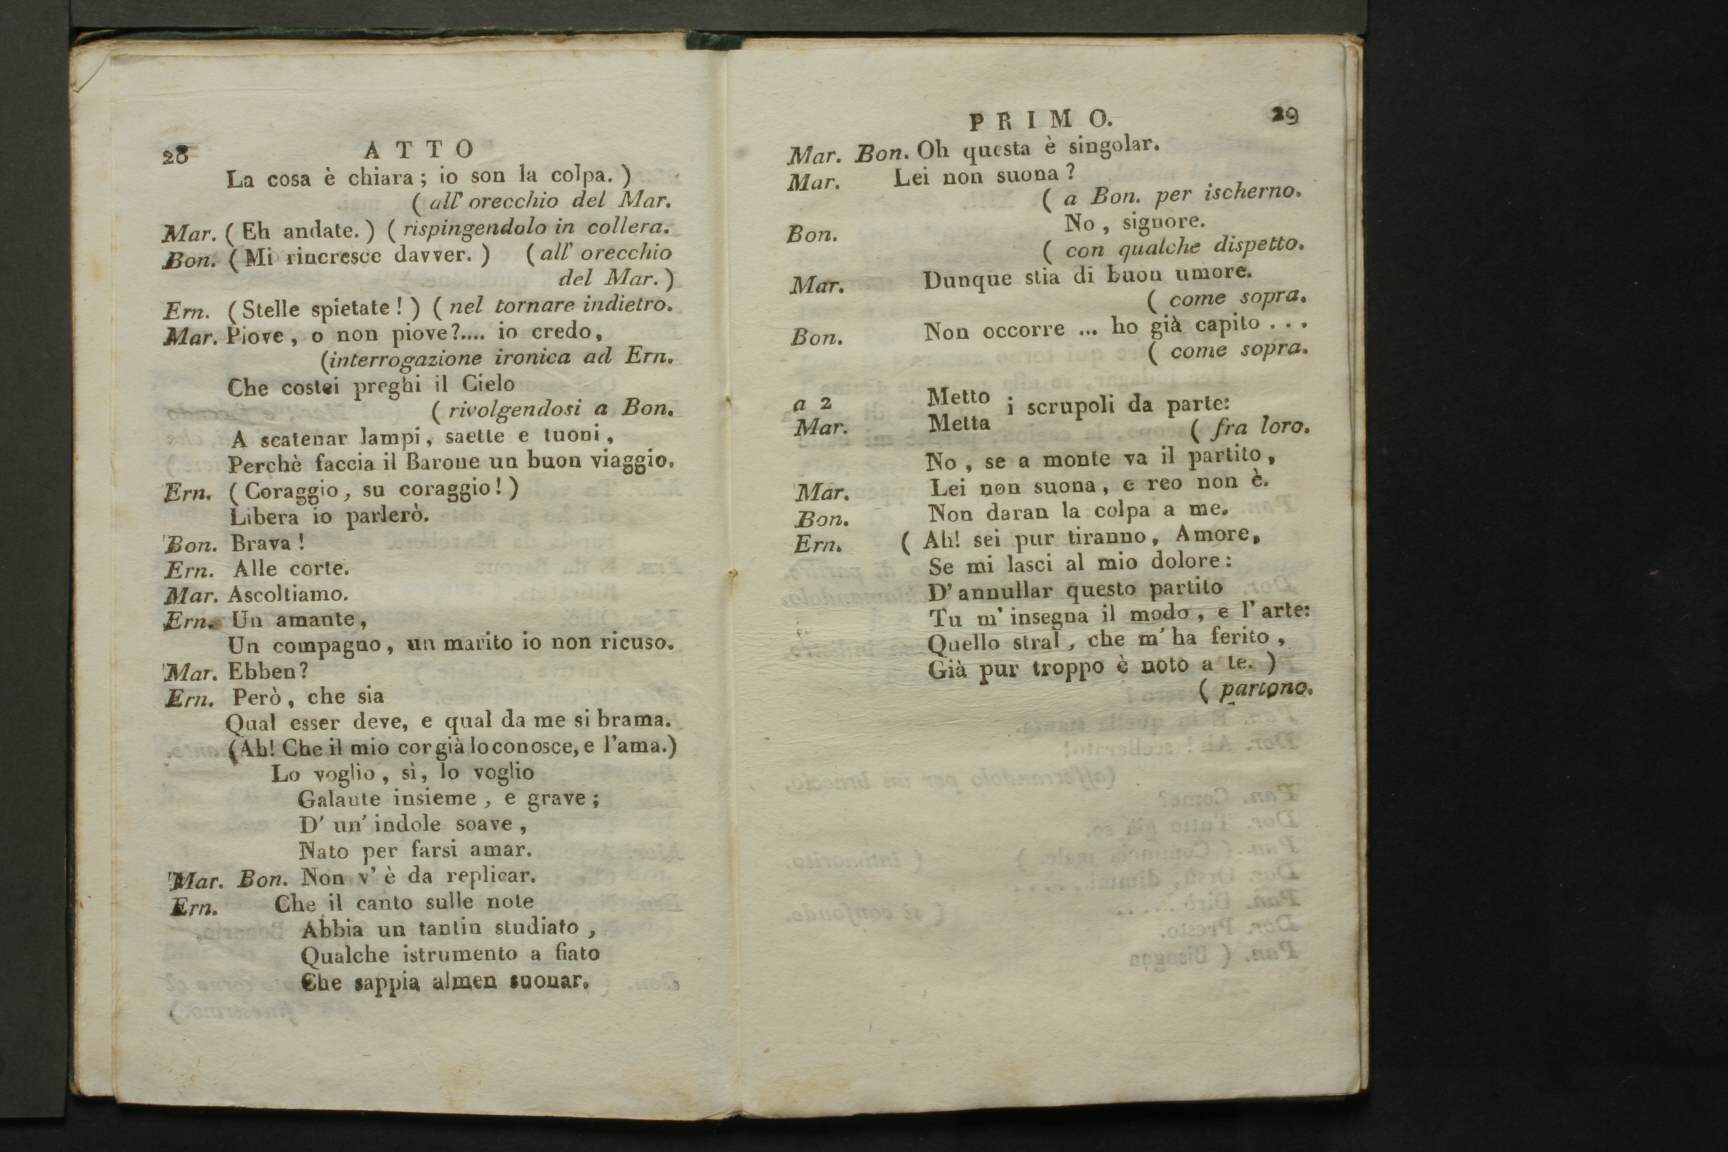 28 ATTO
La cosa è chiara; io son la colpa. )
( all' orecchio del Mar.
Mar. ( Eh andate. ) ( rispingendolo in collera.
Bon. ( Mi rincresce davver. ) ( all' orecchio
del Mar. )
Ern. ( Stelle spietate! ) ( nel tornare indietro.
Mar. Piove, o non piove?.... io credo,
(interrogazione ironica ad Ern.
Che costei preghi il Cielo
( rivolgendosi a Bon.
A scatenar lampi, saette e tuoni,
Perchè faccia il Barone un buon viaggio.
Ern. ( Coraggio, su coraggio! )
Libera io parlerò.
Bon. Brava!
Ern. Alle corte.
Mar. Ascoltiamo.
Ern. Un amante,
Un compagno, un marito io non ricuso.
Mar. Ebben?
Ern. Però, che sia
Qual esser deve, e qual da me si brama.
(Ah! Che il mio cor già lo conosce, e l'ama.)
Lo voglio, sì, lo voglio
Galante insieme, e grave;
D' un' indole soave,
Nato per farsi amar.
Mar. Bon. Non v' è da replicar.
Ern. Che il canto sulle note
Abbia un tantin studiato,
Qualche istrumento a fiato
Che sappia almen suonar.
PRIMO. 29
Mar. Bon. Oh questa è singolar.
Mar. Lei non suona?
( a Bon. per ischerno.
Bon. No, signore.
( con qualche dispetto.
Mar. Dunque stia di buon umore.
( come sopra.
Bon. Non occorre ... ho già capito . . .
( come sopra.
a 2 Metto i scrupoli da parte:
Mar. Metta ( fra loro.
No, se a monte va il partito,
Mar. Lei non suona, e reo non è.
Bon. Non daran la colpa a me.
Ern. ( Ah! sei pur tiranno, Amore,
Se mi lasci al mio dolore:
D' annullar questo partito
Tu m' insegna il modo, e l' arte:
Quello stral, che m' ha ferito,
Già pur troppo è noto a te. )
( partono.